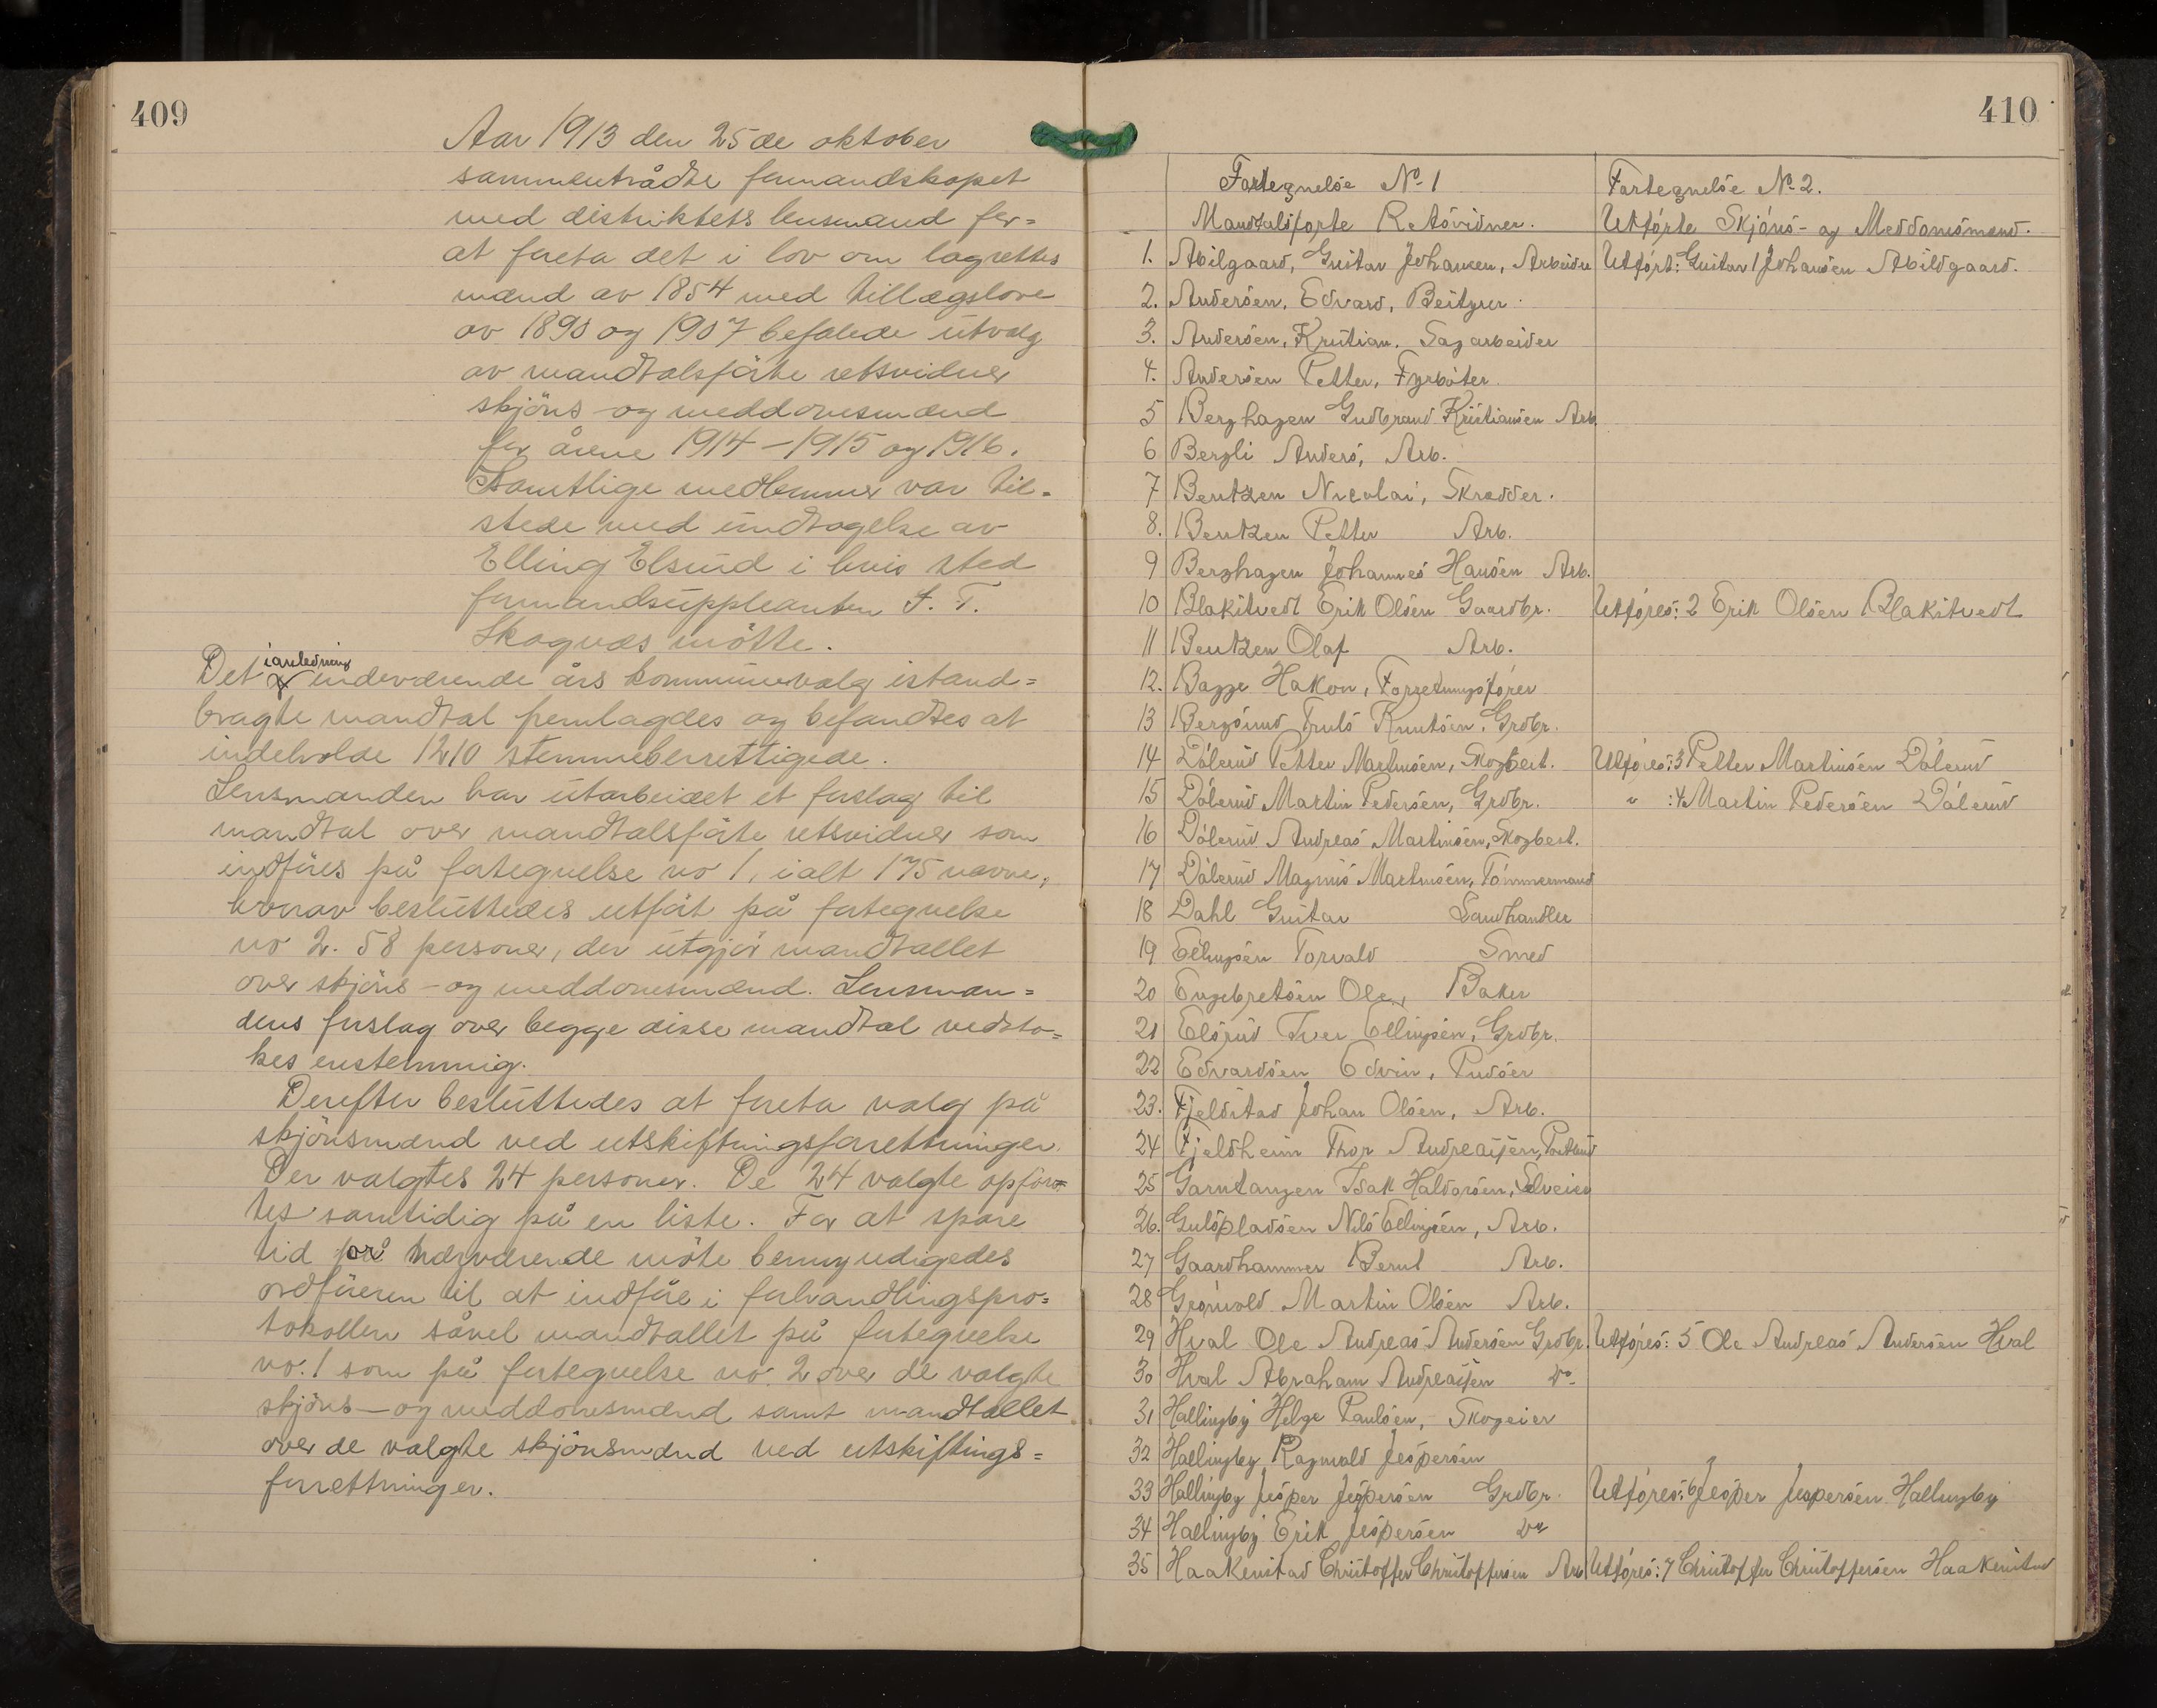 409
Aar 1913 den 25de oktober
sammentrådte formandskapet
med distriktets lensmand for=
at foreta det i lov om lagrettes
mænd av 1854 med tillægslove
av 1890 og 1907 befalede utvalg
av mandtalsførte retsvidner
skjöns - og meddomsmænd
for årene 1914 - 1915 og 1916.
Samtlige medlemmer var til=
stede med undtagelse av
Elling Elsrud i hvis sted
formandsuppleanten F. T.
Skagnæs mötte.
Det i anledning indeværende års kommunevalg istand=
bragte mandtal fremlagdes og befandtes at
indeholde 1210 stemmeberettigede.
Lensmanden har utarbeidet et forslag til
mandtal over mandtalsførte retsvidner som
indføres på fortegnelse no 1, i alt 175 navne,
hvorav besluttedes utført på fortegnelse
no 2. 58 personer, der utgjør mandtallet
over skjöns - og meddomsmænd. Lensman=
dens forslag over begge disse mandtal vedto=
kes enstemmig.
Derefter besluttedes at foreta valg på
skjönsmænd ved utskiftningsforretninger.
Der valgtes 24 personer. De 24 valgte opför=
tes samtidig på en liste. For at spare
tid på nærværende möte bemyndigedes
ordföreren til at indføre i forhandlingspro=
tokollen såvel mandtallet på fortegnelse
no. 1 som på fortegnelse no. 2 over de valgte
skjöns - og meddomsmænd samt mandtallet
over de valgte skjönsmænd ved utskiftnings=
forretninger.
410
Fortegnelse No. 1 Fortegnelse No. 2.
Mandtalsförte Retsvidner. Utförte Skjöns- og Meddomsmænd.
1. Abilgaard, Gustav Johansen, Arbeider Utfört: Gustav 1 Johansen Abildgaard.
2. Andersen, Edvard, Beitzer.
3. Andersen, Kristian. Sagarbeider
4. Andersen Petter, Fyrböter.
5 Berghagen Gudbrand Kristiansen Arb.
6 Bergli Anders, Arb.
7 Bentzen Nicolai, Skrædder.
8. Bentzen Petter Arb.
9 Berghagen Johannes Hansen Arb.
10 Blakstvedt Erik Olsen Gaardbr. Utföres: 2 Erik Olsen Blakstvedt
11 Bentzen Olaf Arb.
12. Bagge Hakon, Forretningsförer
13 Bergsund Truls Knutsen, Grdbr.
14 Dölerud Petter Martinsen, Skogbest. Utföres: 3 Petter Martinsen Dölerud
15 Dölerud Martin Pedersen, Grdbr. " : 4 Martin Pedersen Dölerud
16 Dölerud Andreas Martinsen, Skogbest.
17 Dölerud Magnus Martinsen, Tömmermand
18 Dahl Gustav Landhandler
19 Ellingsen Torvald Smed
20 Engebretsen Ole, Baker
21 Elsrud Iver Ellingsen, Grdbr.
22 Edvardsen Edvin, Pudser
23. Fjeldstad Johan Olsen, Arb.
24 Fjeldheim Thor Andreassen,
25 Garntangen Isak Haldorsen, Selveier
26. Nils Ellingsen, Arb.
27 Gaardhammer Bernt Arb.
28 Grönvold Martin Olsen Arb.
29 Hval Ole Andreas Andersen Grdbr. Utföres: 5 Ole Andreas Andersen Hval
30 Hval Abraham Andreassen do.
31 Hallingby Helge Paulsen, Skogeier
32 Hallingby Ragnvald Jespersen
33 Hallingby Jesper Jespersen Grdbr. Utföres: 6 Jesper Jespersen Hallingby
34 Hallingby Erik Jespersen do
35 Haakenstad Christoffer Christoffersen Arb Utföres: 7 Christoffer Christoffersen Haakenstad